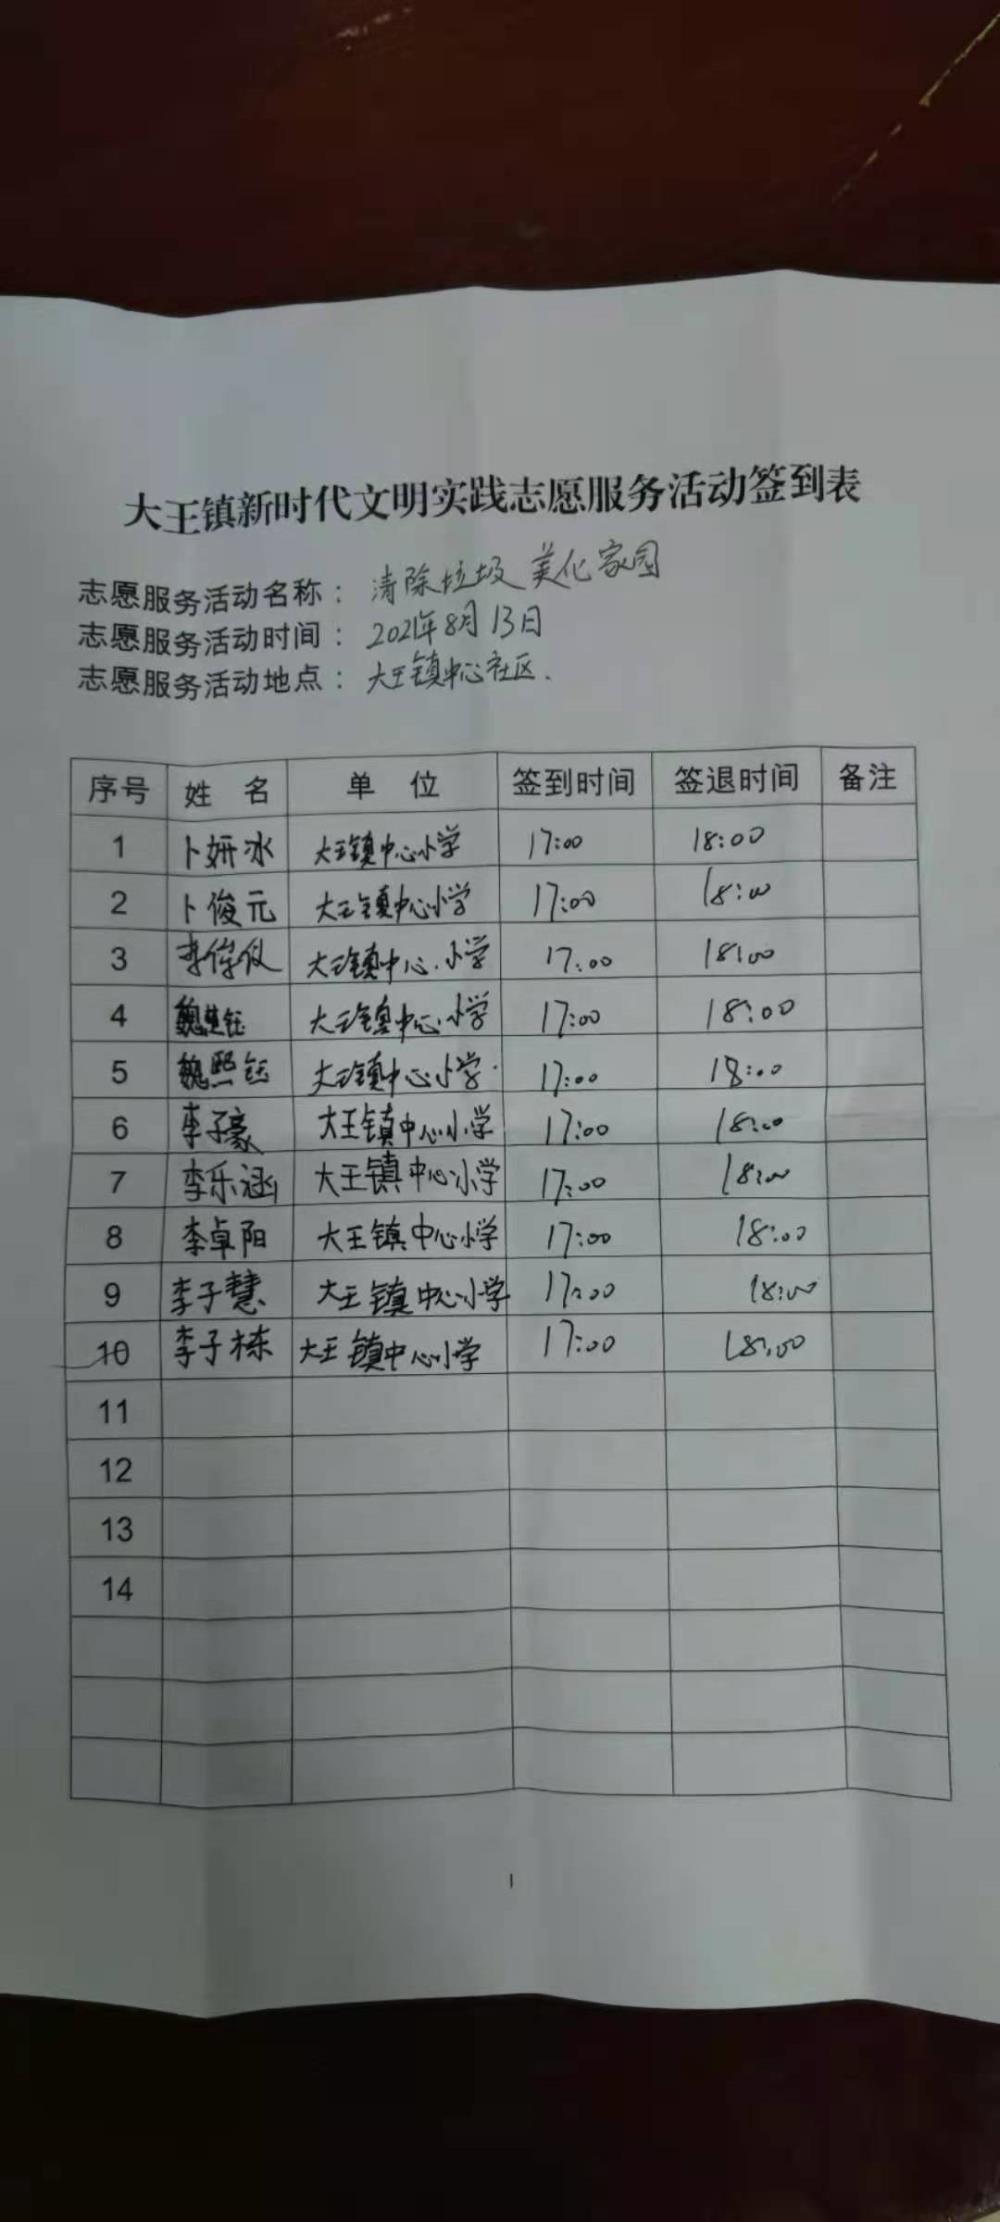 大王镇新时代文明实践志愿服务活动签到表
志愿服务活动名称：清除垃圾 美化家园
志愿服务活动时间：2021年8月13日
志愿服务活动地点：大王镇中心社区.
序号 姓 名 单 位 签到时间 签退时间 备注
1 卜妍冰 大王镇中心小学 17:00 18:00
2 卜俊元 大王镇中心小学 17:00 18:00
3 大王镇中心小学 17:00 18:00
4 魏 钰 大王镇中心小学 17:00 18:00
5 魏熙钰 大王镇中心小学 17:00 18:00
6 李子豪 大王镇中心小学 17:00 18:00
7 李乐涵 大王镇中心小学 17:00 18:00
8 李卓阳 大王镇中心小学 17:00 18:00
9 李子慧 大王镇中心小学 17:00 18:00
10 李子栋 大王镇中心小学 17:00 18:00
11
12
13
14
1